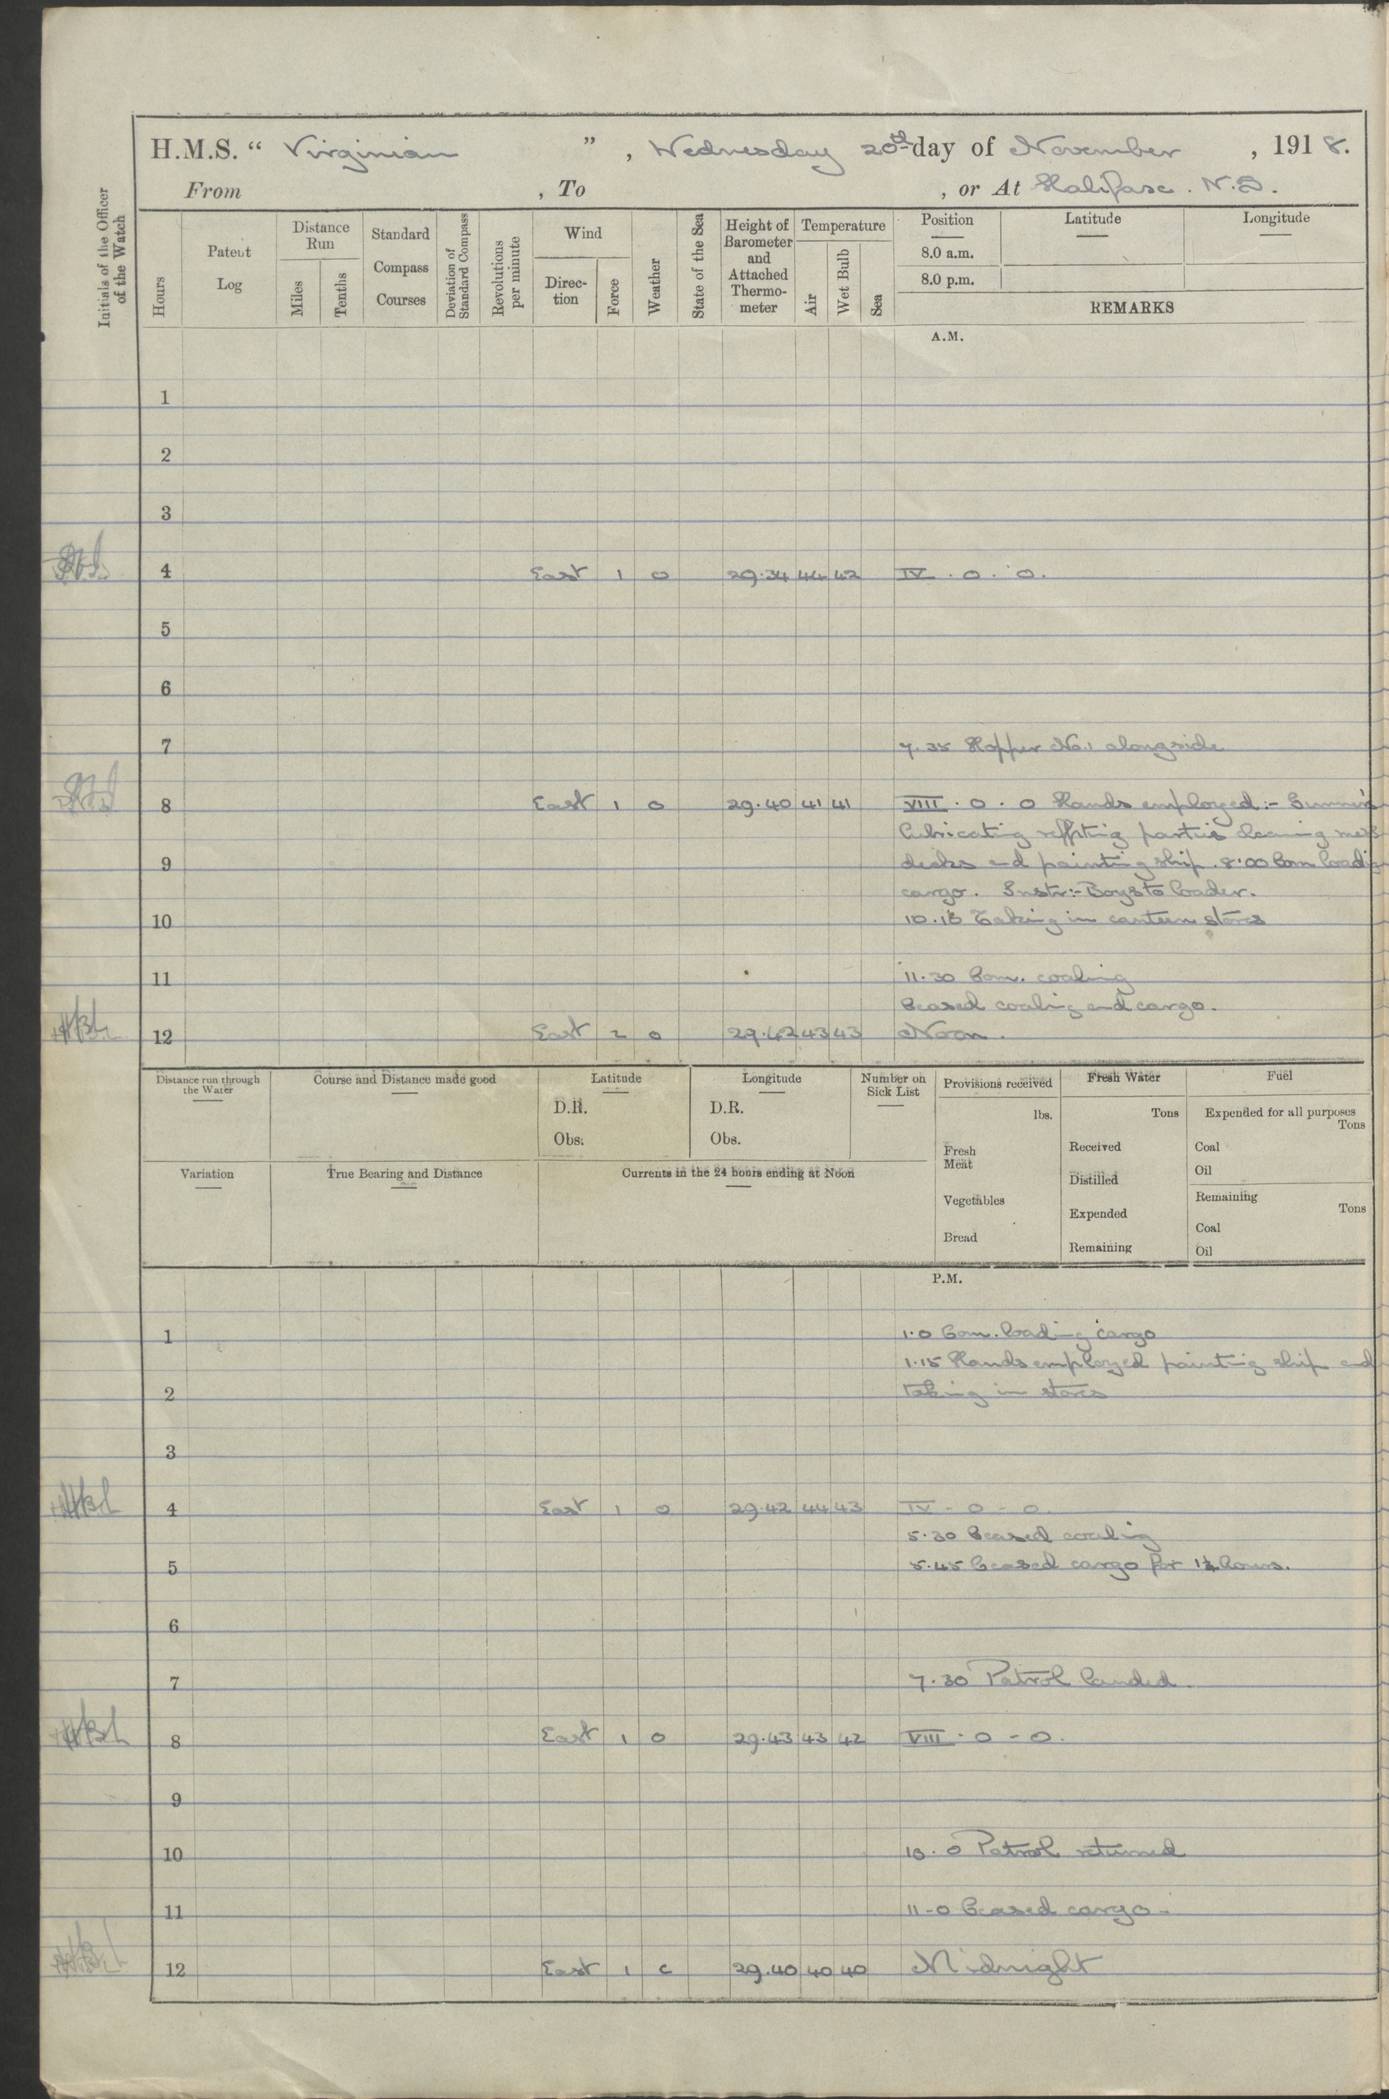 H.M.S. “ Virginian ” , Wednesday 20th day of November , 1918.
From , To , or At Halifax. N.S.
Initials of the Officer of the Watch
Hours
Patent Log
Distance Run
Miles
Tenths
Standard Compass Courses
Deviation of Standard Compass
Revolutions per minute
Wind
Direction
Force
Weather
State of the Sea
Height of Barometer and Attached Thermometer
Temperature
Air
Wet Bulb
Sea
Position Latitude Longitude
8.0 a.m.
8.0 p.m.
REMARKS
A.M.
1
2
3
4 East 1 o 29.34 44 42 IV . 0 . 0.
5
6
7 7.35 Hopper No.1 alongside
8 East 1 o 29.40 41 41 VIII . 0 . 0 Hands employed:-
lubricating refitting parties cleaning mess
9 decks and painting ship. 8.00 Com loading
cargo. Instr:- Boys to loader.
10 10.15 Taking in canteen stores
11 11.30 Com. coaling
Ceased coaling and cargo.
12 East 2 o 29.42 43 43 Noon.
Distance run through the Water
Course and Distance made good
Latitude
D.R.
Obs.
Longitude
D.R.
Obs.
Number on Sick List
Provisions received
lbs.
Fresh Meat
Vegetables
Bread
Fresh Water
Tons
Received
Distilled
Expended
Remaining
Fuel
Expended for all purposes
Tons
Coal
Oil
Remaining
Tons
Coal
Oil
Variation
True Bearing and Distance
Currents in the 24 hours ending at Noon
P.M.
1 1.0 Com. loading cargo
1.15 Hands employed painting ship and
2 taking in stores
3
4 East 1 o 29.42 44 43 IV - 0 - 0.
5.30 Ceased coaling
5 5.45 Ceased cargo for 1¼ hours.
6
7 7.30 Patrol landed.
8 East 1 o 29.43 43 42 VIII . 0 - 0.
9
10 10.0 Patrol returned
11 11-0 Ceased cargo-
12 East 1 c 29.40 40 40 Midnight